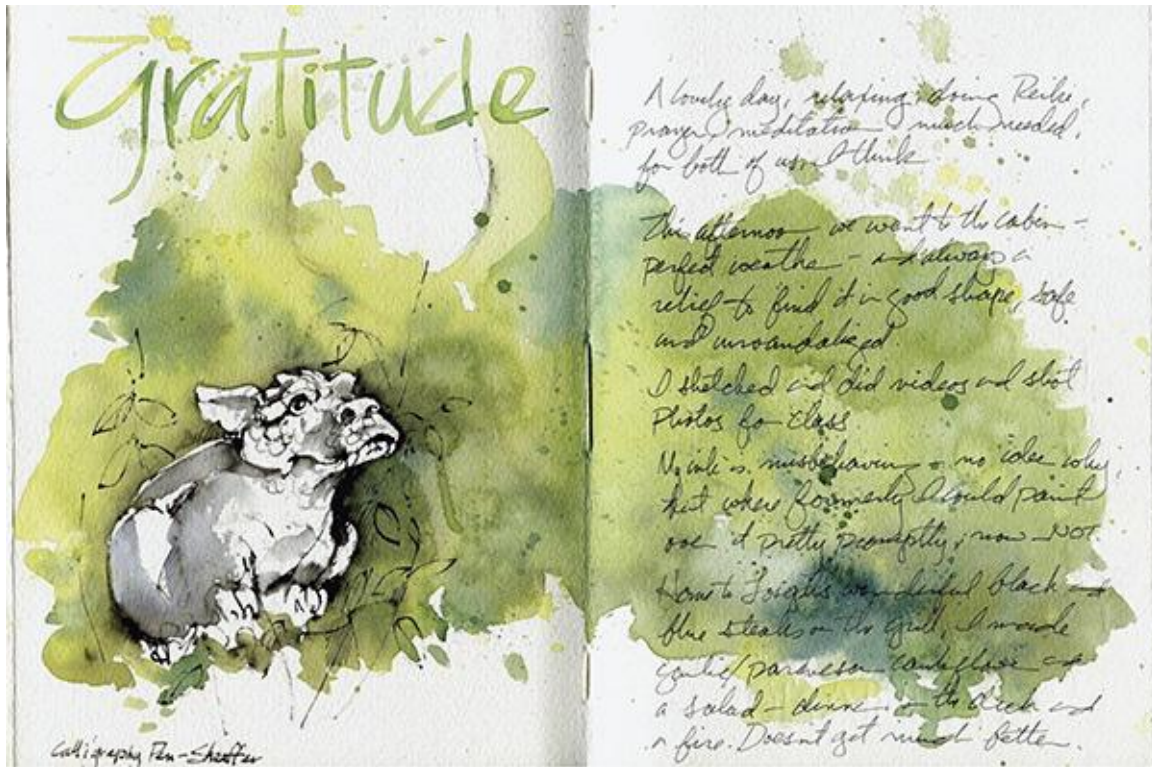 Gratitude
Calligraphy Pen - Sheaffer
A lovely day, relaxing, doing Reiki,
prayer, meditation - much needed,
for both of us I think
This afternoon we went to the cabin -
perfect weather - and always a
relief to find it in good shape, safe
and unvandalized.
I sketched and did videos and shot
photos for class
My ink is misbehaving - no idea why,
but where formerly I could paint
over it pretty promptly, now - NOT.
Home to wonderful black and
blue steaks on the grill, I made
garlic/parmesan cauliflower and
a salad - dinner on the deck and
a fire. Doesn't get much better.